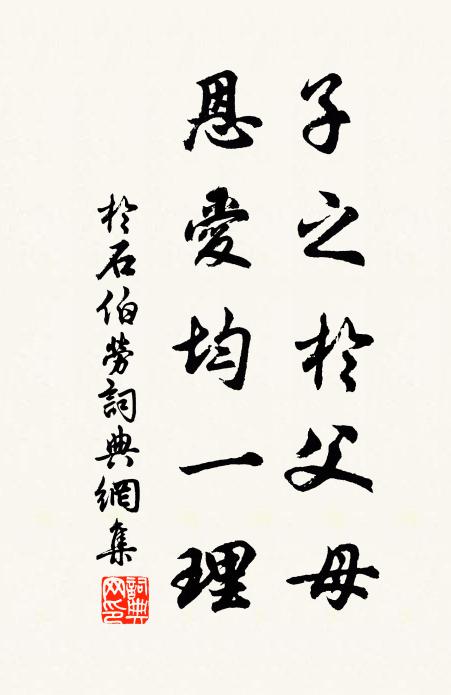 子之於父母
恩愛均一理
於石伯勞詞典網集
詞典
网印